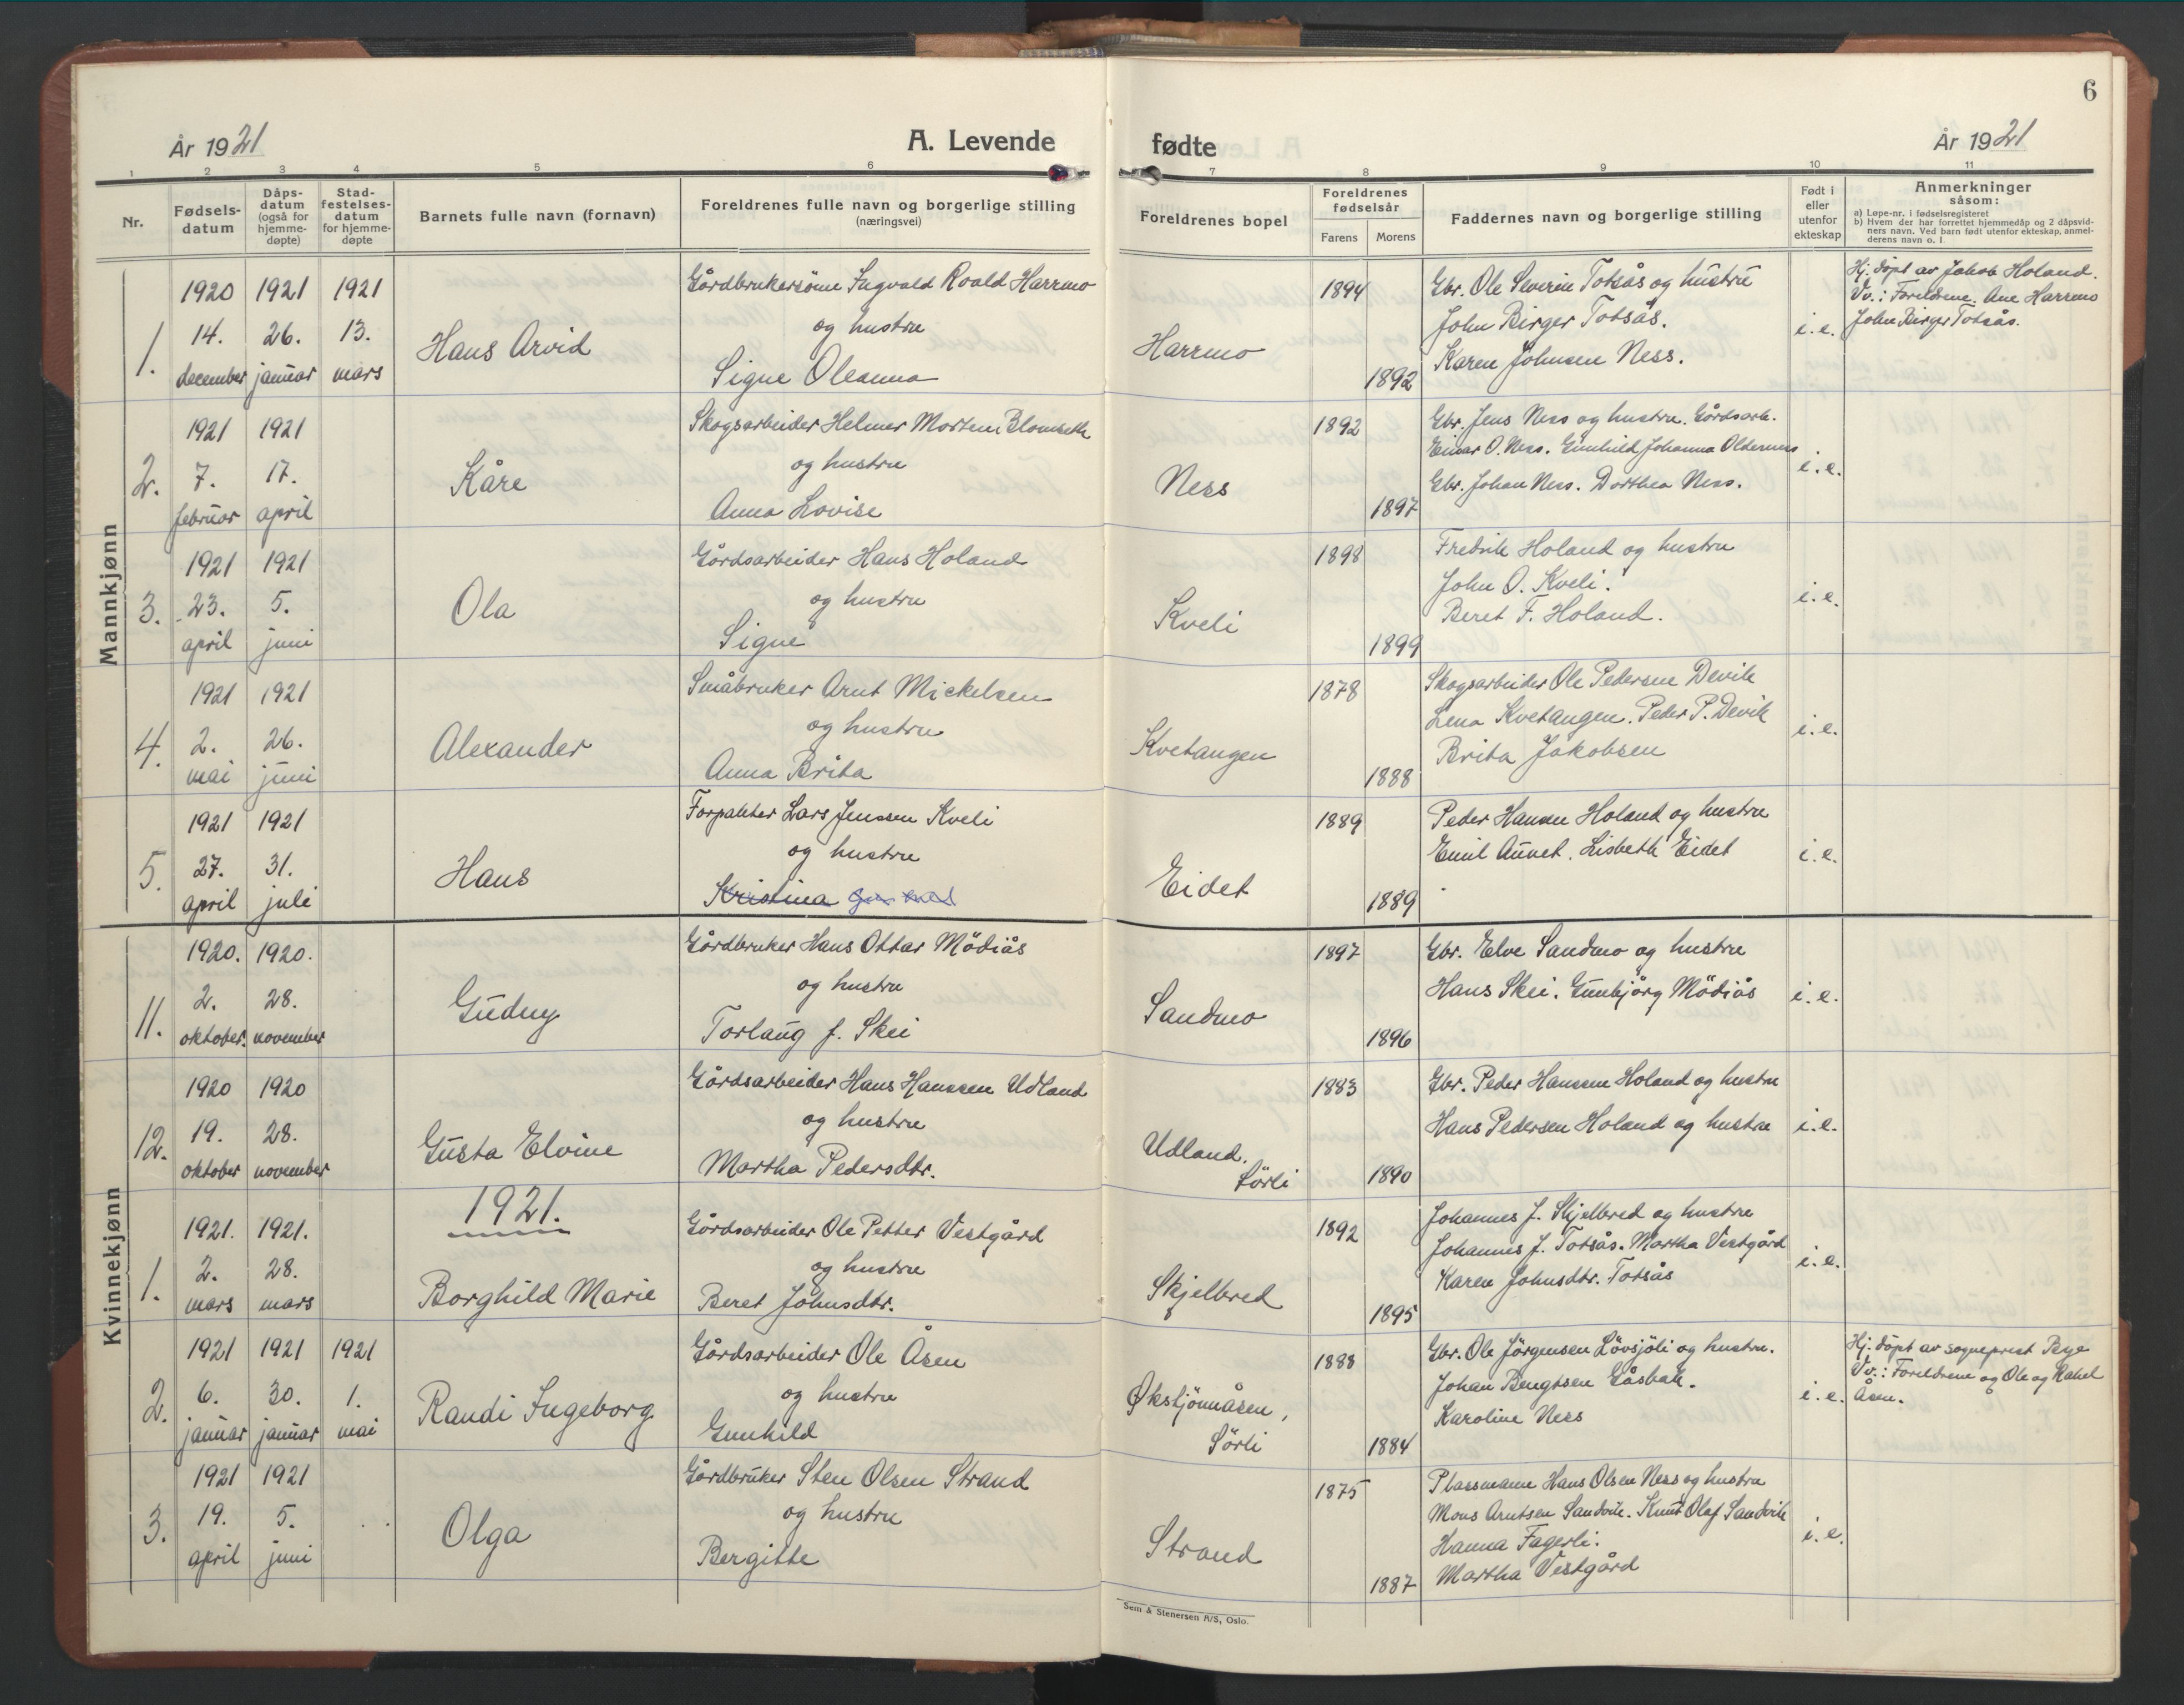 6
År 1921
A. Levende
fødte
År 1921
1 2 3 4 5 6 7 8 9 10 11
Nr.
Fødsels-
datum
Dåps-
datum
(også for
hjemme-
døpte)
Stad-
festelses-
datum
for hjemme-
døpte
Barnets fulle navn (fornavn)
Foreldrenes fulle navn og borgerlige stilling
(næringsvei)
Foreldrenes bopel
Foreldrenes
fødselsår
Farens Morens
Faddernes navn og borgerlige stilling
Født i
eller
utenfor
ekteskap
Anmerkninger
såsom:
a) Løpe-nr. i fødselsregisteret
b) Hvem der har forrettet hjemmedåp og 2 dåpsvid-
ners navn. Ved barn født utenfor ekteskap, anmel-
derens navn o. l.
Mannkjønn
1.
1920
14.
december
1921
26.
januar
1921
13.
mars
Hans Arvid
Gårdbrukersönn Ingvald Roald Harrmo
og hustru
Signe Oleanna
Harrmo
1894
1892
Gbr. Ole Severin Totsås og hustru
John Birger Totsås.
Karen Johnsen Ness.
i.e.
Hj. döpt av Jakob Holand.
Vv.: Foreldrene. Ane Harrmo
John Birger Totsås.
2.
1921
7.
februar
1921
17.
april
Kåre
Skogsarbeider Helmer Morten Blomseth
og hustru
Anna Lovise
Ness
1892
1897
Gbr. Jens Ness og hustru. Gårdsarb.
Einar O. Ness. Gunhild Johanna Olderness
Gbr. Johan Ness. Dorthea Ness.
i.e.
3.
1921
23.
april
1921
5.
juni
Ola
Gårdsarbeider Hans Holand
og hustru
Signe
Kveli
1898
1899
Fredrik Holand og hustru
John O. Kveli.
Beret F. Holand.
i.e.
4.
1921
2.
mai
1921
26.
juni
Alexander
Småbruker Arnt Mickelsen
og hustru
Anna Brita
Kvetangen
1878
1888
Skogsarbeider Ole Pedersen Devik
Lena Kvetangen. Peder P. Devik
Brita Jakobsen
i.e.
5.
1921
27.
april
1921
31.
juli
Hans
Forpakter Lars Jenssen Kveli
og hustru
Kristina
Eidet
1889
1889
Peder Hansen Holand og hustru
Emil Aunet. Lisbeth Eidet
i.e.
Kvinnekjønn
11.
1920.
2.
oktober.
1920.
28.
november
Gudny
Gårdbruker Hans Ottar Mödiås
og hustru
Torlaug f. Skei
Sandmo
1897
1896
Gbr. Elve Sandmo og hustru
Hans Skei. Gunbjörg Mödiås
i.e.
12.
1920
19.
oktober
1920
28.
november
Gusta Elvine
Gårdsarbeider Hans Hanssen Udland
og hustru
Martha Pedersdtr.
Udland.
Sörli
1883
1890
Gbr. Peder Hanssen Holand og hustru
Hans Pedersen Holand og hustru
i.e.
1921.
1.
1921.
2.
mars
1921.
28.
mars
Borghild Marie
Gårdsarbeider Ole Petter Vestgård
og hustru
Beret Johnsdtr.
Skjelbred
1892
1895
Johannes J. Skjelbred og hustru
Johannes J. Totsås. Martha Vestgård
Karen Johnsdtr. Totsås
i.e.
2.
1921
6.
januar
1921
30.
januar
1921
1.
mai
Randi Ingeborg
Gårdsarbeider Ole Åsen
og hustru
Gunhild
Økstjönnåsen,
Sörli
1888
1884
Gbr. Ole Jörgensen Lövsjöli og hustru.
Johan Bengtsen Gåsbak.
Karoline Ness
i.e.
Hj. döpt av sogneprest Bye
Vv.: Foreldrene og Ole og Rakel
Åsen.
3.
1921
19.
april
1921
5.
juni
Olga
Gårdbruker Sten Olsen Strand
og hustru
Bergitte
Strand
1875
1887
Plassmann Hans Olsen Ness og hustru
Mons Arntsen Sandvik. Knut Olaf Sandvik
Hanna Fagerli.
Martha Vestgård
i.e.
Sem & Stenersen A/S, Oslo.